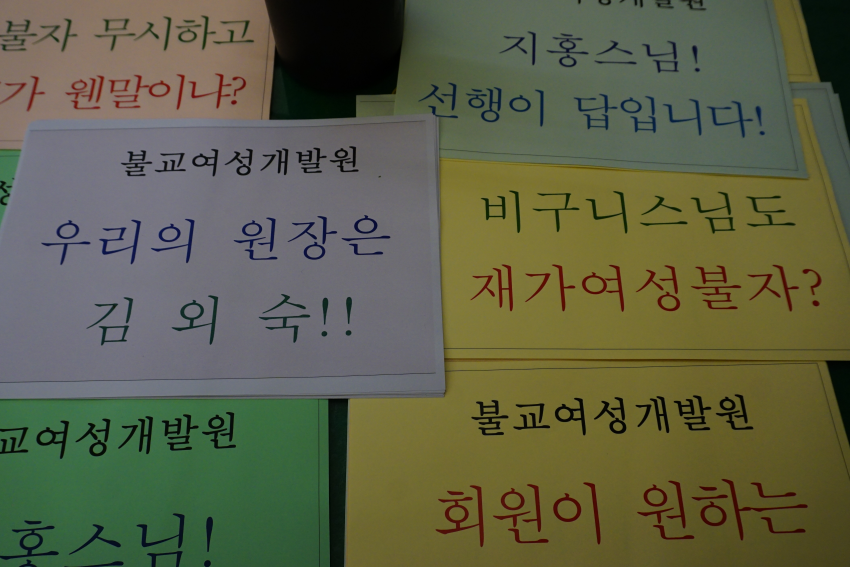 불자 무시하고
가 웬말이냐?
개발원
지홍스님!
선행이 답입니다!
불교여성개발원
우리의 원장은
김 외 숙!!
비구니스님도
재가여성불자?
교여성개발원
홍스님!
불교여성개발원
회원이 원하는